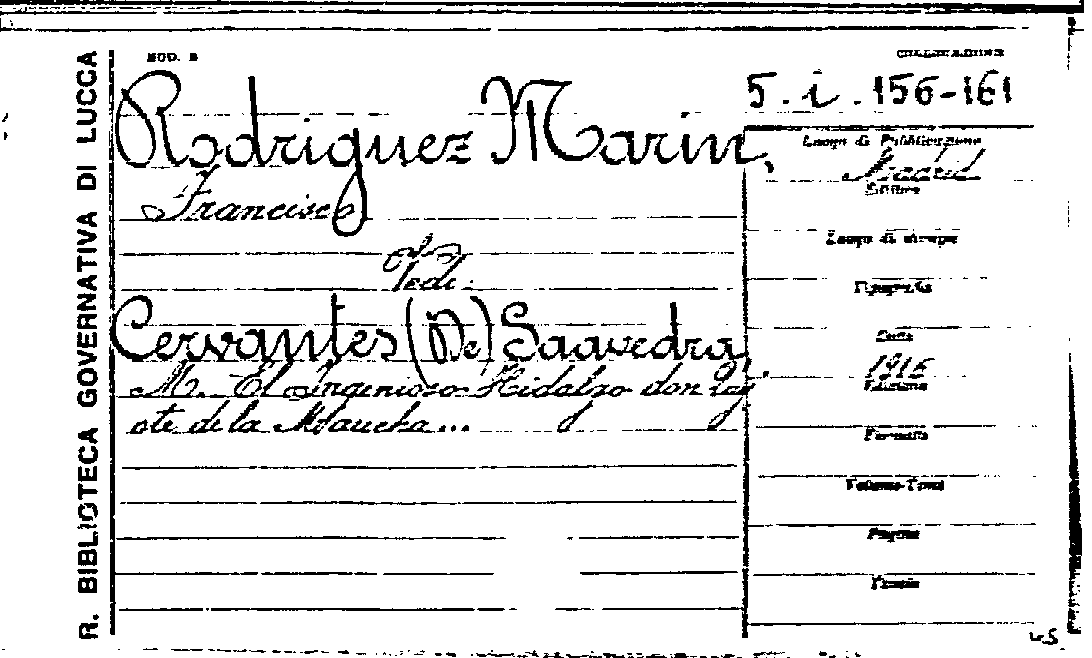 R. BIBLIOTECA GOVERNATIVA DI LUCCA
MOD. B
COLLOCAZIONE
5. i. 156-161
Rodriguez Marin,
Francisco
Vedi:
Cervantes (De) Saavedra
M. El Ingenioso Hidalgo don Qij
ote de la Mancha...
Luogo di Pubblicazione
Madrid
Editore
Luogo di stampa
Tipografia
Data
1916
Edizione
Formato
Volume-Tomi
Pagine
Tavole